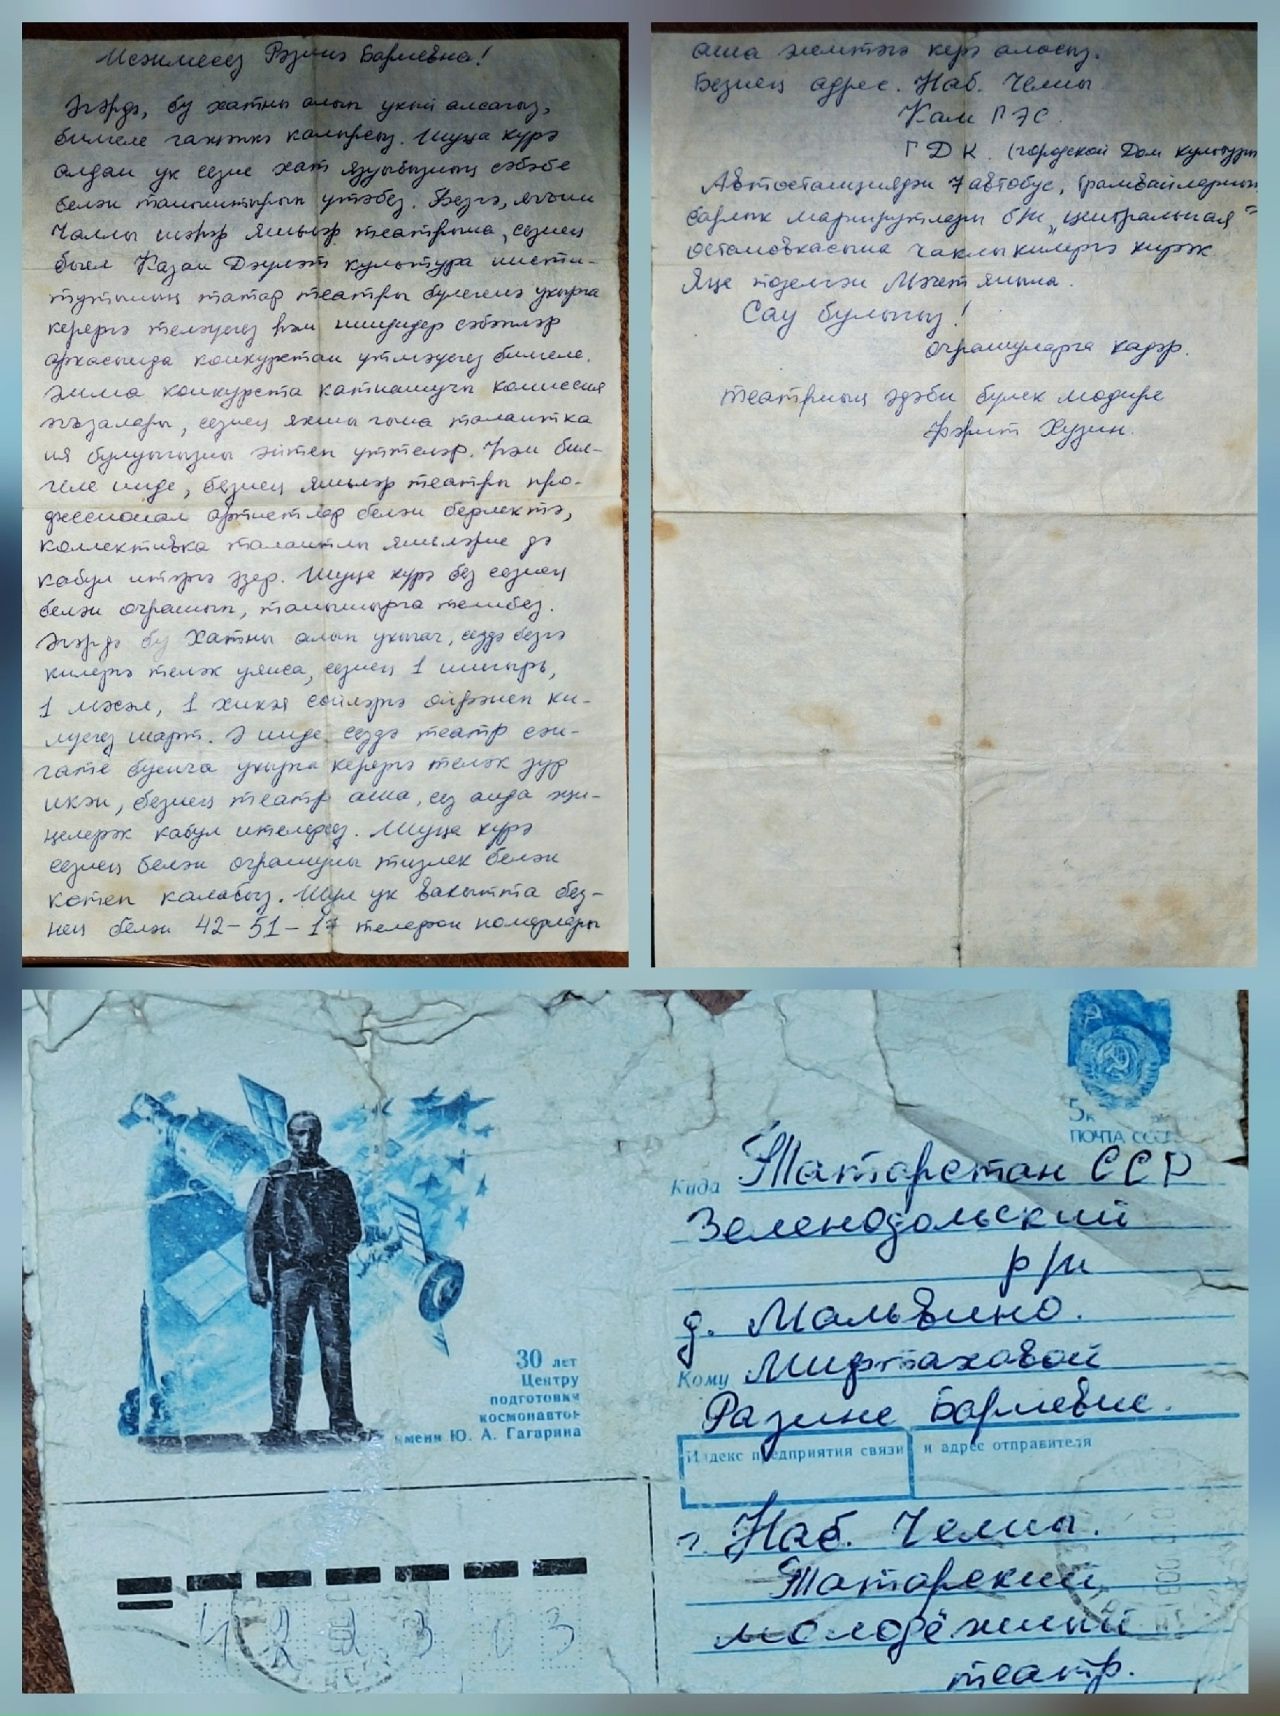 Исәнмесез Рәзинә Бариевна!
Әгәрдә, бу хатны алып укый алсагыз,
билгеле гаҗәпкә калырсыз. Шуңа күрә
алдан ук сезне хат язуыбызның сәбәбе
белән таныштырып үтәбез. Безгә, ягъни
Чаллы шәһәр яшьләр театрына, сезнең
быел Казан Дәүләт культура инсти-
тутының татар театры бүлегенә укырга
керергә теләвегез һәм ниндидер сәбәпләр
аркасында конкурстан үтмәвегез билгеле.
Әмма конкурста катнашучы комиссия
әгъзалары, сезнең яхшы гына талантка
ия булуыгызны әйтеп үттеләр. Һәм бил-
геле инде, безнең яшьләр театры про-
фессионал артистлар белән берлектә,
коллективка талантлы яшьләрне дә
кабул итәргә әзер. Шуңа күрә без сезнең
белән очрашып, танышырга телибез.
Әгәрдә бу хатны алып укыгач, сездә безгә
килергә теләк уянса, сезнең 1 шигырь,
1 мәсәл, 1 хикәя сөйләргә өйрәнеп ки-
лүегез шарт. Ә инде сездә театр сән-
гате буенча укырга керергә теләк зур
икән, безнең театр аша, сез анда җи-
ңелрәк кабул ителәсез. Шуңа күрә
сезнең белән очрашуны тизлек белән
көтеп калабыз. Шул ук вакытта без-
нең белән 42-51-17 телефон номерлары
аша элемтәгә керә аласыз.
Безнең адрес. Наб. Челны
Кам ГЭС.
ГДК. (городской Дом культуры
Автостанциядән 7 автобус, трамвайларның
барлык маршрутлары б/н "центральная"
остановкасына чаклы килергә кирәк
Яңе төзелгән Мәчет янына.
Сау булыгыз!
очрашуларга кадәр.
театрның әдәби бүлек мөдире
Фәрит Хузин.
5к
ПОЧТА СССР
30 лет
Центру
подготовки
космонавтов
имени Ю. А. Гагарина
Куда Татарстан ССР
Зеленодольский
р/н
д. Мальвино.
Кому Мифтаховой
Разине Бариевне.
Индекс предприятия связи и адрес отправителя
г. Наб. Челны.
Татарский
молодёжный
театр.